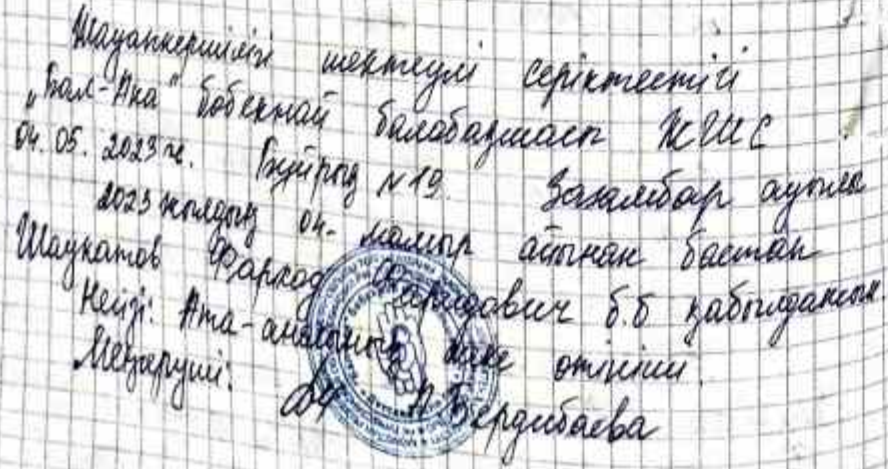 Жауапкершілігі шектеулі серіктестігі
„Бал-Ака" бөбекжай балабақшасы ЖШС
04.05. 2023 ж. Бұйрық №19. ауылы
2023 жылдың 04. мамыр айынан бастап
Шаукатов Фарход Фаридович б.б қабылдансын
Негізі: Ата-ананың жеке өтініші.
Меңгеруші: А Бердибаева